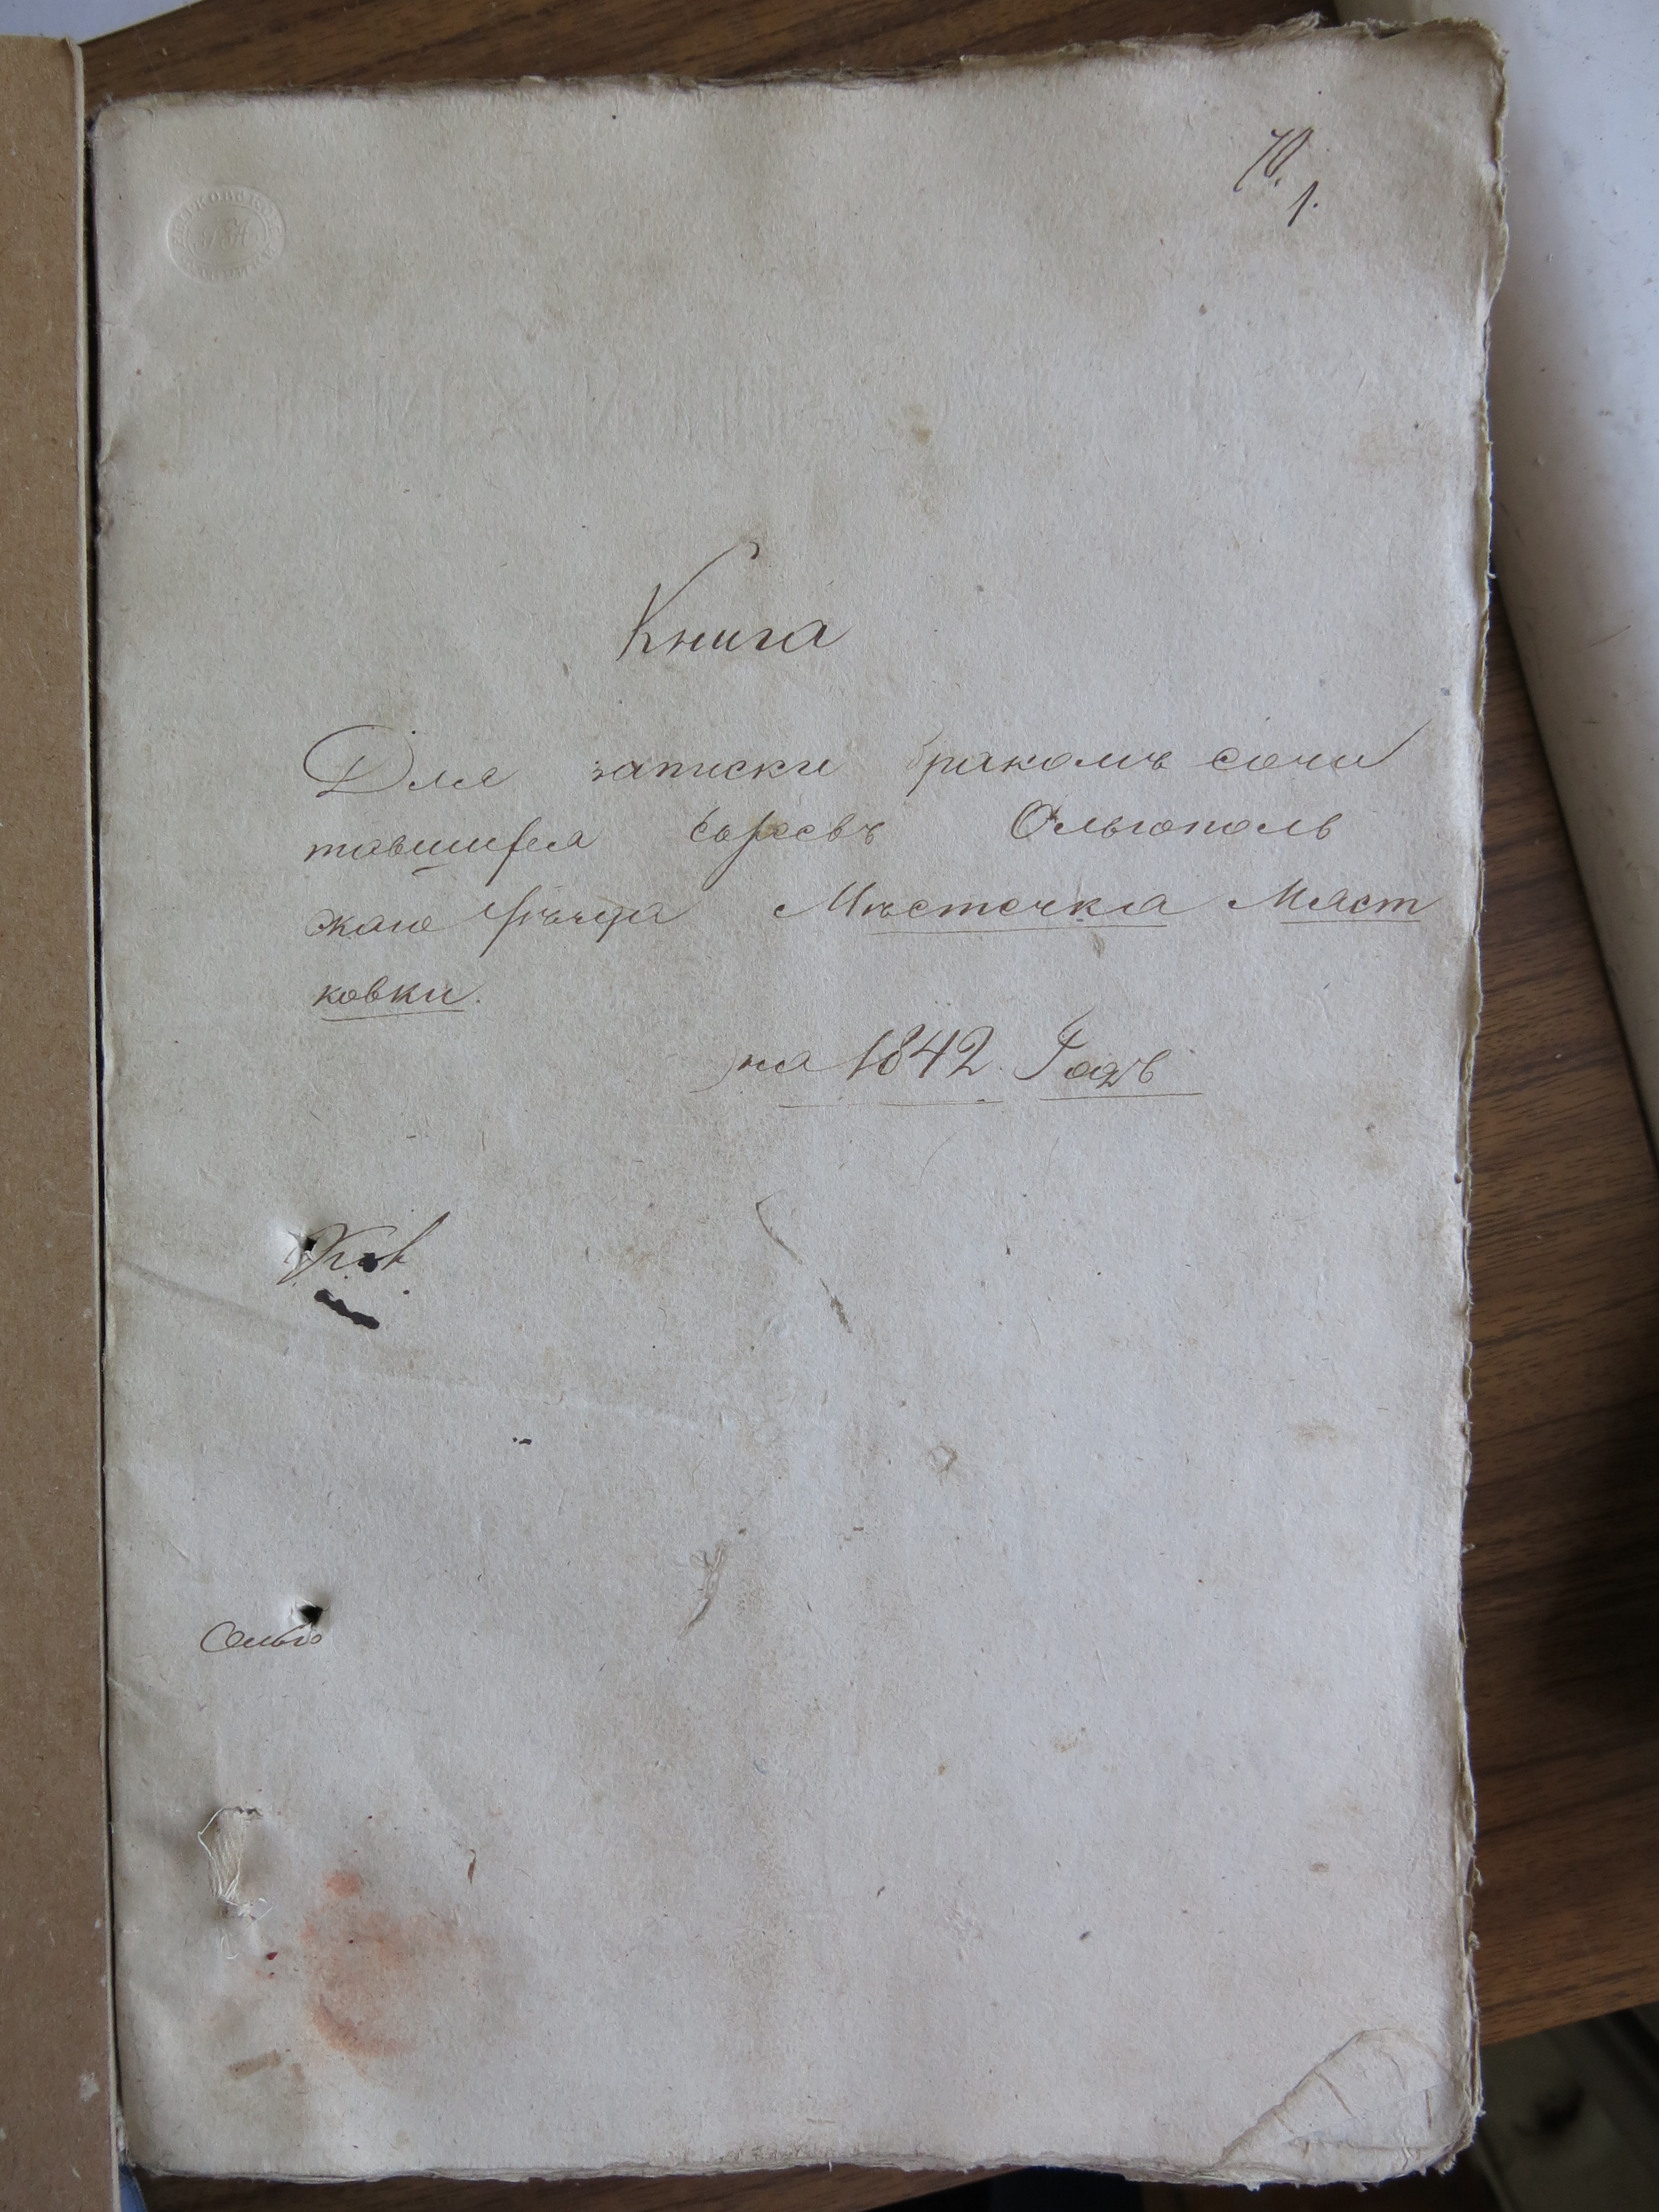 1.
Книга
Для записки бракомъ сочи
тавшихся Евреевъ Ольгополь
скаго Уѣзда Мѣстечка Мяст
ковки.
на 1842 Годъ
Ольго